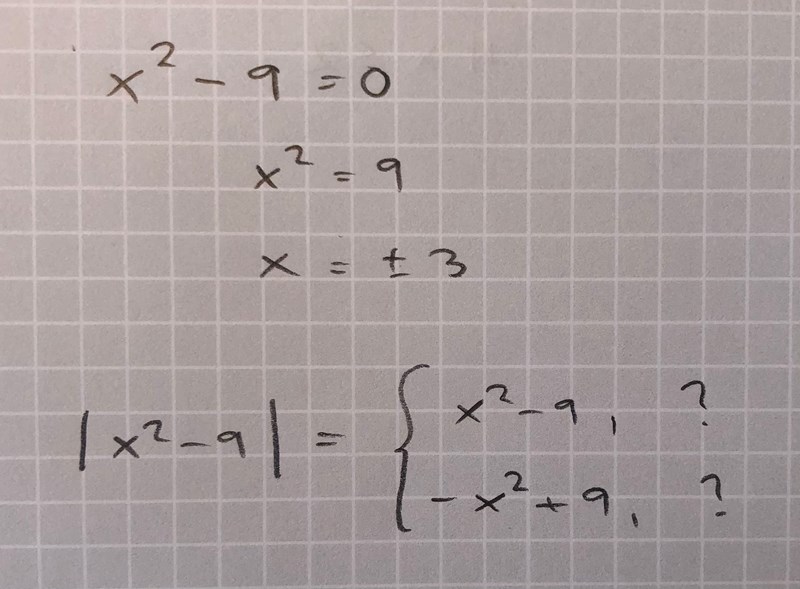 x² - 9 = 0
x² = 9
x = ± 3
|x² - 9| = { x² - 9, ?
- x² + 9, ?